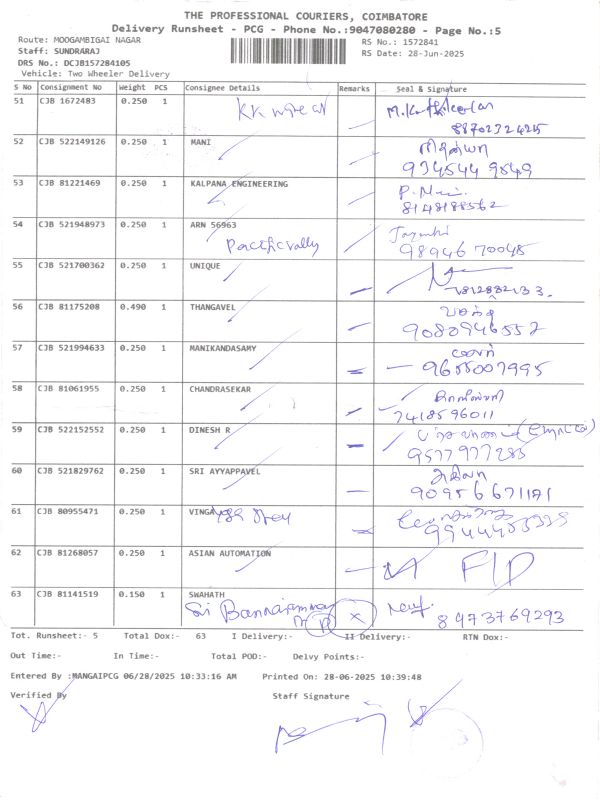 THE PROFESSIONAL COURIERS, COIMBATORE
Delivery Runsheet - PCG - Phone No.:9047080280 - Page No.:5
Route: MOOGAMBIGAI NAGAR RS No.: 1572841
Staff: SUNDRARAJ RS Date: 28-Jun-2025
DRS No.: DCJB157284105
Vehicle: Two Wheeler Delivery
S No Consignment No Weight PCS Consignee Details Remarks Seal & Signature
51 CJB 1672483 0.250 1
88702324215
52 CJB 522149126 0.250 1 MANI
934544 9849
53 CJB 81221469 0.250 1 KALPANA ENGINEERING
8148188562
54 CJB 521948973 0.250 1 ARN 56963
Pacificvally 98946 70045
55 CJB 521700362 0.250 1 UNIQUE
7812832133
56 CJB 81175208 0.490 1 THANGAVEL
9080946552
57 CJB 521994633 0.250 1 MANIKANDASAMY
9655007995
58 CJB 81061955 0.250 1 CHANDRASEKAR
7418596011
59 CJB 522152552 0.250 1 DINESH R
9577977285
60 CJB 521829762 0.250 1 SRI AYYAPPAVEL
61 CJB 80955471 0.250 1
62 CJB 81268057 0.250 1 ASIAN AUTOMATION
63 CJB 81141519 0.150 1 SWAHATH
Sri 8973769293
Tot. Runsheet:- 5 Total Dox:- 63 I Delivery:- II Delivery:- RTN Dox:-
Out Time:- In Time:- Total POD:- Delvy Points:-
Entered By :MANGAIPCG 06/28/2025 10:33:16 AM Printed On: 28-06-2025 10:39:48
Verified By Staff Signature